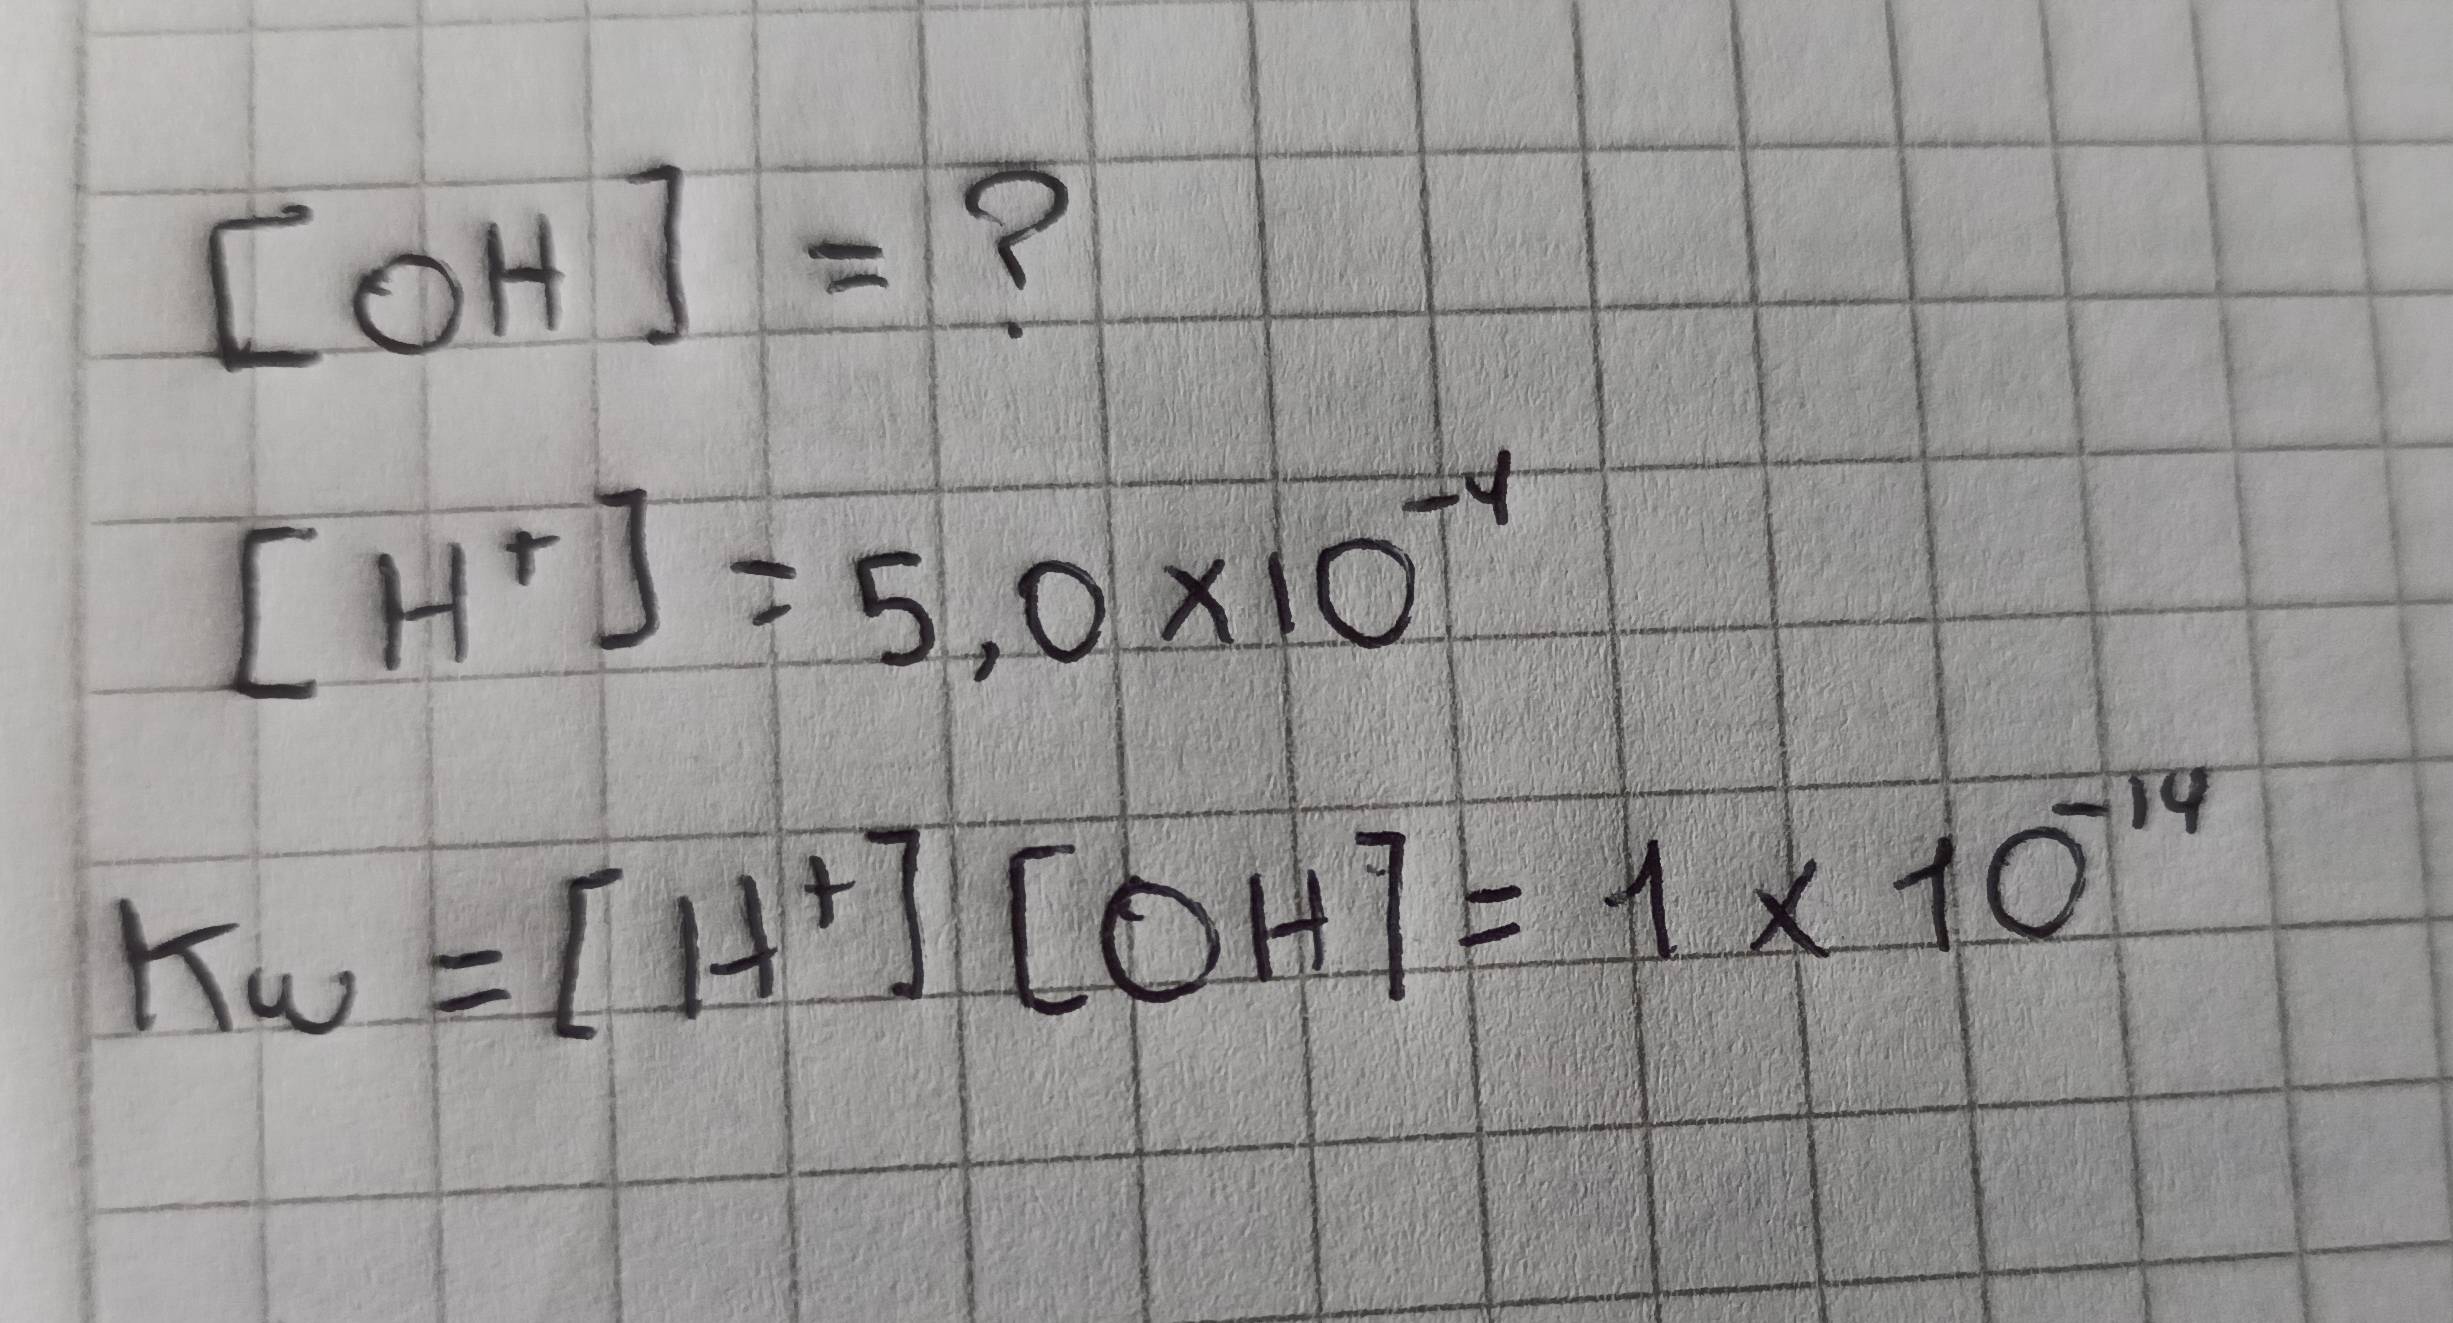 [OH] = ?
[H⁺] = 5,0 x 10⁻⁴
Kw = [H⁺] [OH] = 1 x 10⁻¹⁴